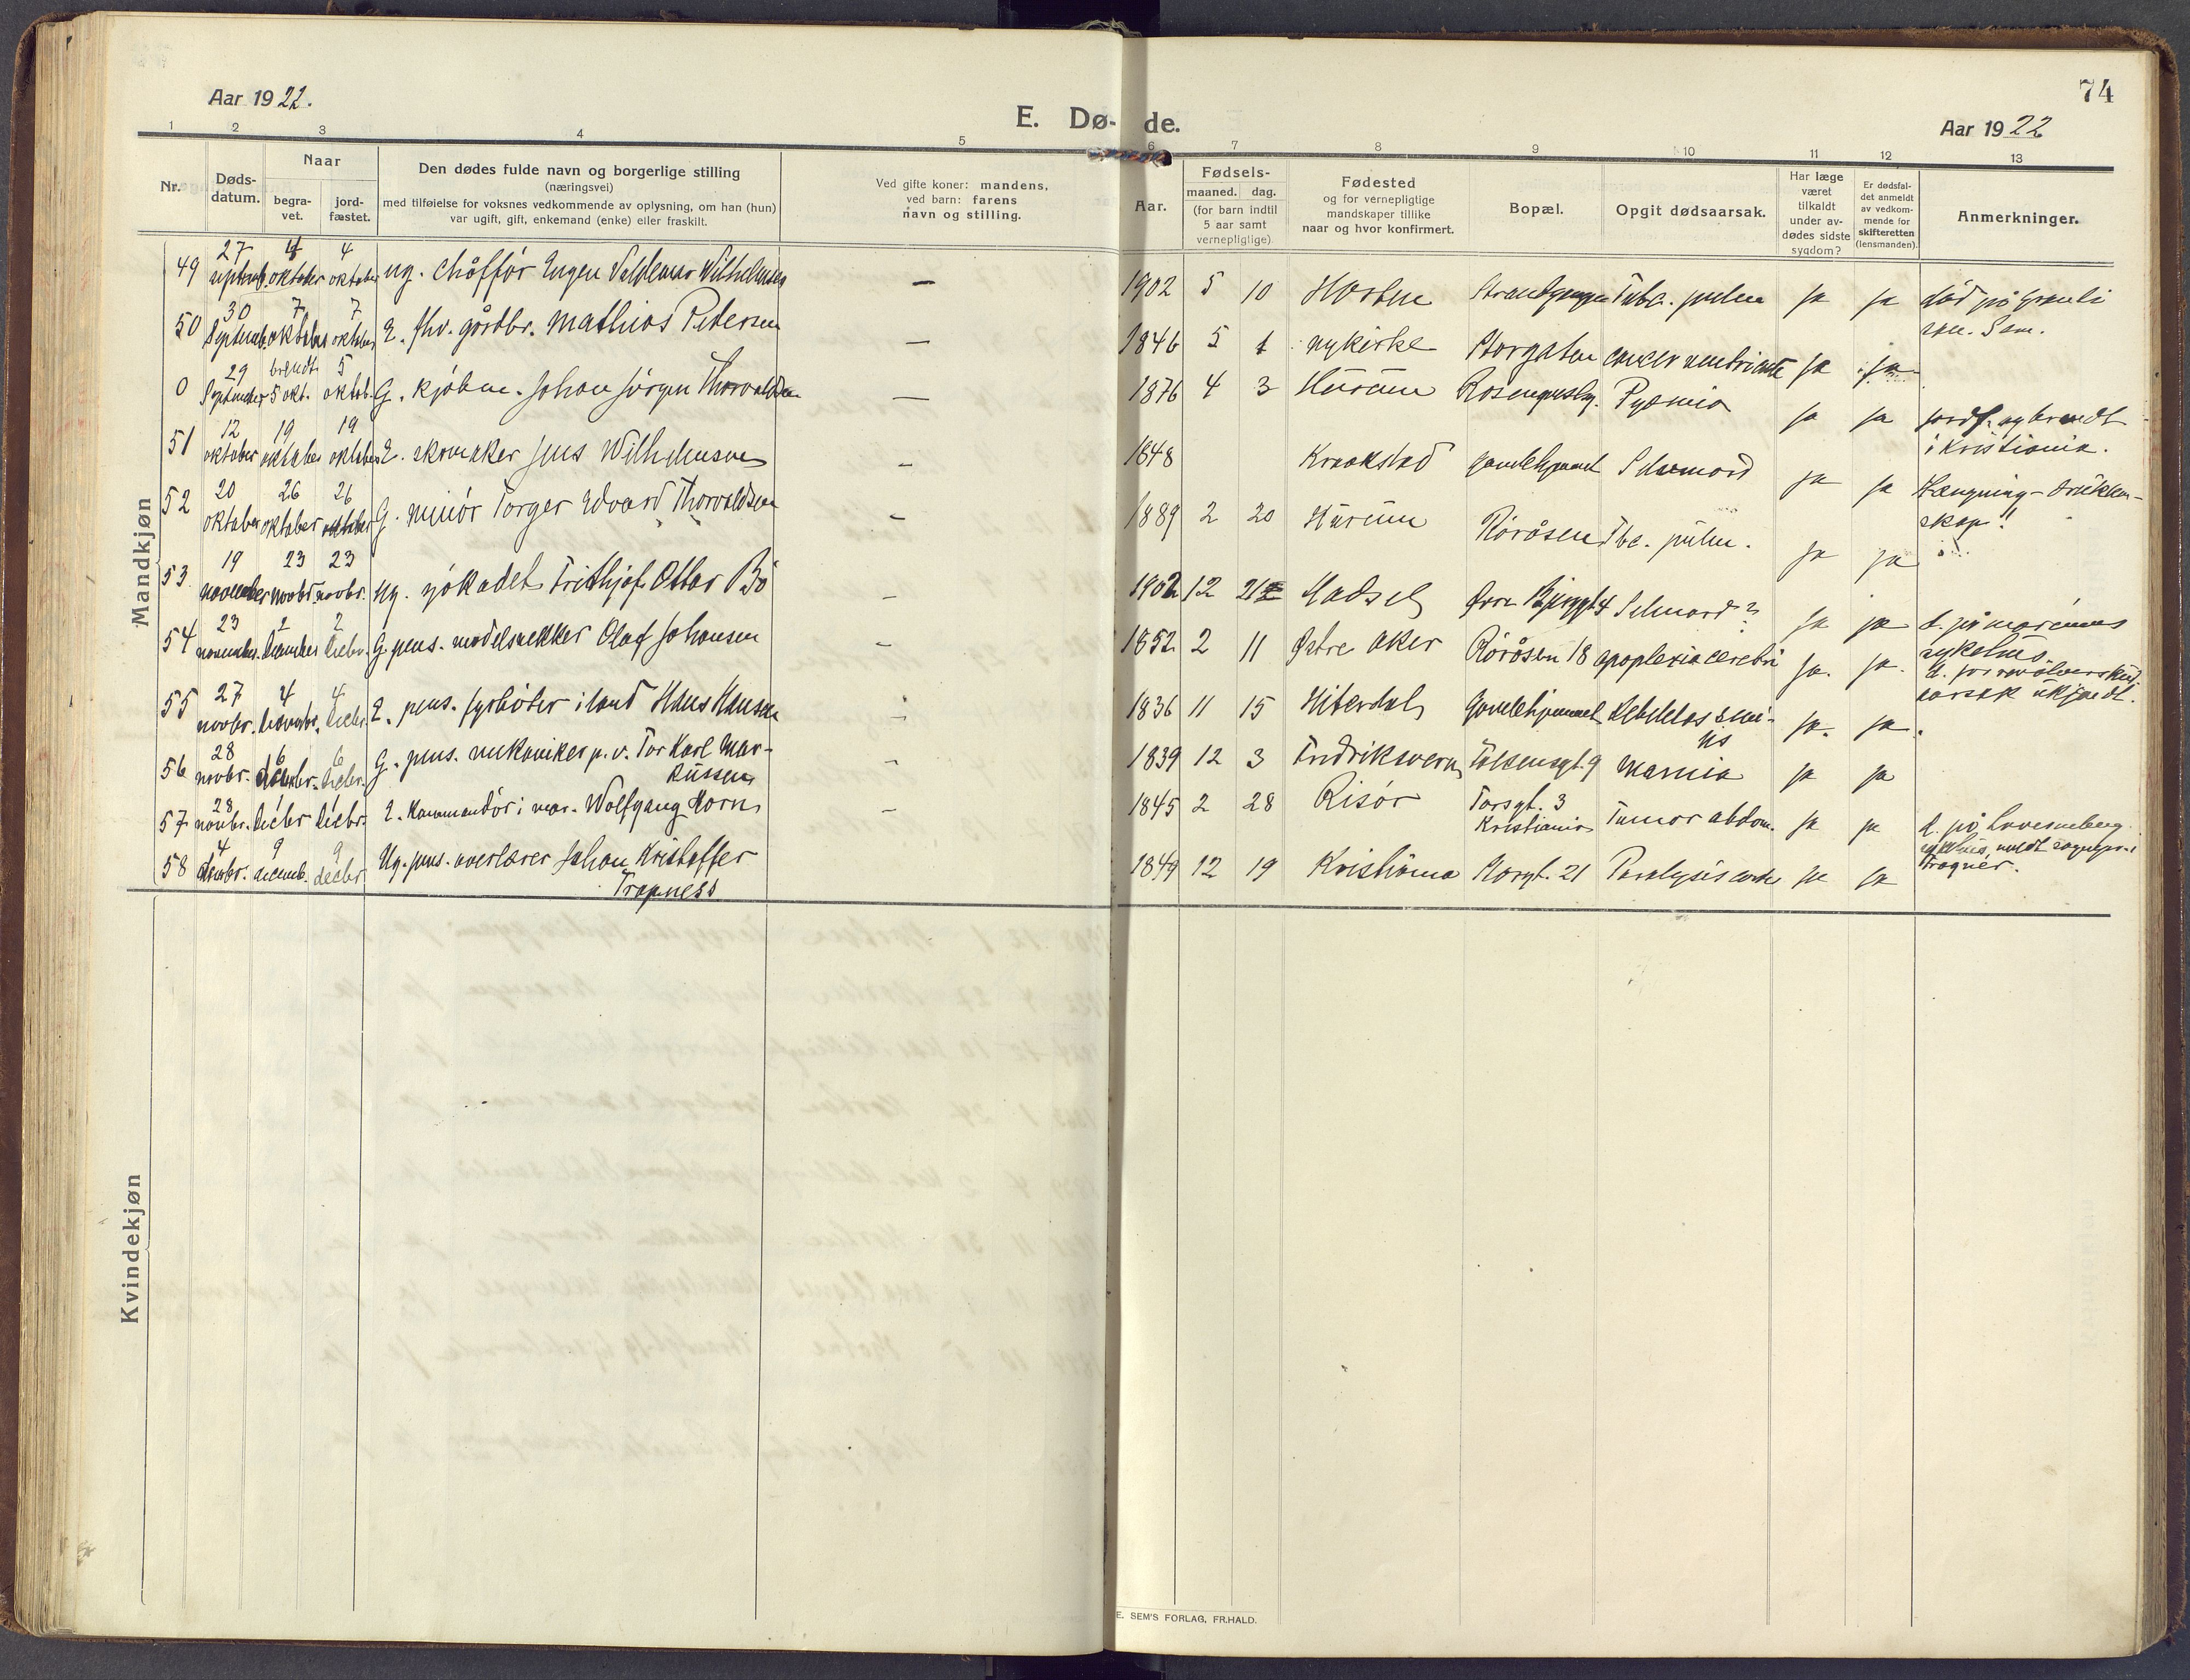 74
Aar 1922.
E. Dø- de.
Aar 1922
1 2 3 4 5 6 7 8 9 10 11 12 13
Nr.
Døds-
datum.
Naar
begra-
vet.
jord-
fæstet.
Den dødes fulde navn og borgerlige stilling
(næringsvei)
med tilføielse for voksnes vedkommende av oplysning, om han (hun)
var ugift, gift, enkemand (enke) eller fraskilt.
Ved gifte koner: mandens,
ved barn: farens
navn og stilling.
Aar.
Fødsels-
maaned. dag.
(for barn indtil
5 aar samt
vernepligtige)
Fødested
og for vernepligtige
mandskaper tillike
naar og hvor konfirmert.
Bopæl.
Opgit dødsaarsak.
Har læge
været
tilkaldt
under av-
dødes sidste
sygdom?
Er dødsfal-
det anmeldt
av vedkom-
mende for
skifteretten
(lensmanden).
Anmerkninger.
Mandkjøn
49 27 septemb. 4 oktober 4 oktober ug. chåffør Eugen Valdemar Wilhelmsen — 1902 5 10 Horten Tubc. pulm ja ja død på Grauli
San.
50 30 Septemb. 7 oktober 7 oktober E. fhv. gårdbr. Mathias Petersen — 1846 5 1 Nykirke Storgaten cancer ventriculi ja ja
0 29 September brendt 5 okt. 5 oktob. G. kjøbm. Johan Jørgen Thorvaldsen — 1876 4 3 Hurum Pyæmia ja ja jordf. og brendt
i Kristiania.
51 12 oktober 19 oktober 19 oktober E. skomaker Jens Wilhelmsen – 1848 Kraakstad Gamlehjemmet Selvmord ja ja Hængning - drikken-
skap!
52 20 oktober 26 oktober 26 oktober G. minør Torger Edvard Thorvaldsen – 1889 2 20 Hurum Røråsen Tbc. pulm. ja ja
53 19 november 23 novbr. 23 novbr. ug. sjøkadet Frithjof Ottar Bö – 1902 12 21 Hadsel Selvmord? ja ja d. på marinens
sykehus
d. for revolverskud.
aarsak ukjendt.
54 23 november. 2 december 2 decbr. G. pens. modelsnekker Olaf Johansen – 1852 2 11 Østre Aker Røråsen 18 apoplexia cerebri ja. ja.
55 27 novbr. 4 decembr. 4 decbr. E. pens. fyrbøter i land Hans Hansen – 1836 11 15 Hiterdal Gamlehjemmet Debilitas seni-
lis ja. ja.
56 28 novbr. 6 decembr. 6 decbr. G. pens. mekaniker p. v. Tor Karl Mar-
kussen – 1839 12 3 Fredriksvern ja ja
57 28 novbr. 1 decbr 1 decbr. E. Kommandør i mar. Wolfgang Horn – 1845 2 28 Risør Torsgt. 3
Kristiania Tumor abdom. ja ja d. på Lovisenberg
sykehus, meldt sogneprest i
Frogner.
58 4 decbr. 9 decemb. 9 decbr Ug. pens. overlærer Johan Kristoffer
Trapness 1849 12 19 Kristiania 21 Paralysis cordis ja ja
Kvindekjøn
E. SEM'S FORLAG, FR.HALD.